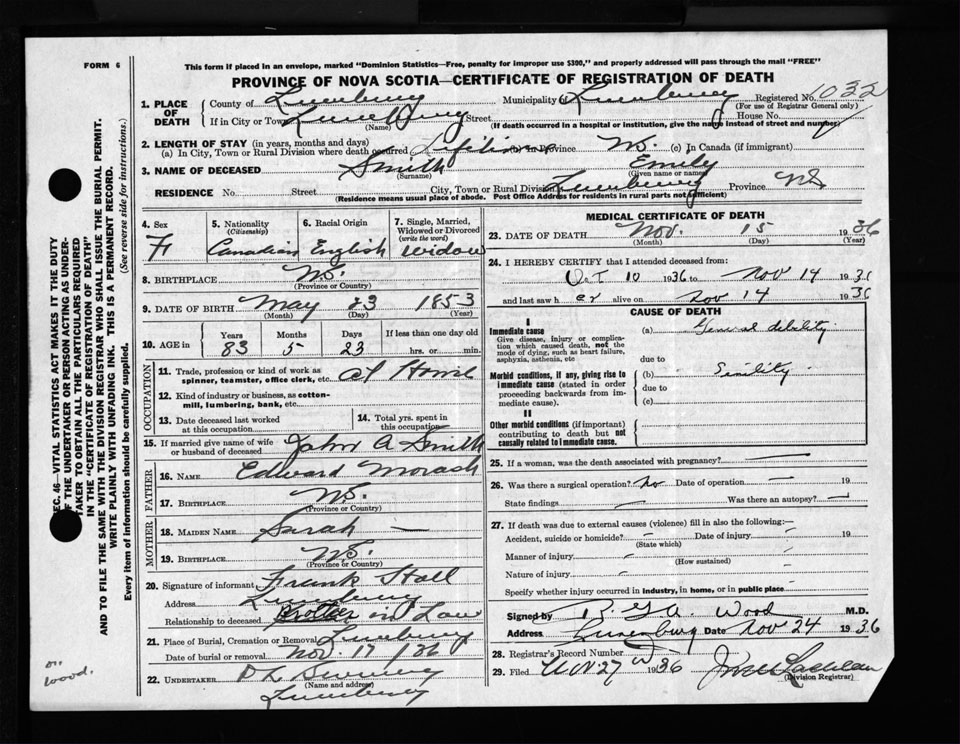 FORM 6
This form if placed in an envelope, marked "Dominion Statistics—Free, penalty for improper use $300," and properly addressed will pass through the mail "FREE"
PROVINCE OF NOVA SCOTIA—CERTIFICATE OF REGISTRATION OF DEATH
1. PLACE OF DEATH
County of Lunenburg Municipality of Lunenburg Registered No. 1032
(For use of Registrar General only)
If in City or Town Lunenburg Street House No.
(Name) (If death occurred in a hospital or institution, give the name instead of street and number)
2. LENGTH OF STAY (in years, months and days)
(a) In City, Town or Rural Division where death occurred Lifetime (b) In Province N.S. (c) In Canada (if immigrant)
3. NAME OF DECEASED Smith Emily
(Surname) (Given name or names)
RESIDENCE No. Street City, Town or Rural Division Lunenburg Province NS
(Residence means usual place of abode. Post Office Address for residents in rural parts not sufficient)
4. Sex F
5. Nationality (Citizenship) Canadian
6. Racial Origin English
7. Single, Married, Widowed or Divorced (write the word) Widow
8. BIRTHPLACE N.S.
(Province or Country)
9. DATE OF BIRTH May 23 1853
(Month) (Day) (Year)
10. AGE in Years 83 Months 5 Days 23 If less than one day old hrs. or min.
OCCUPATION
11. Trade, profession or kind of work as spinner, teamster, office clerk, etc. at Home
12. Kind of industry or business, as cotton-mill, lumbering, bank, etc.
13. Date deceased last worked at this occupation
14. Total yrs. spent in this occupation
15. If married give name of wife or husband of deceased John A Smith
FATHER
16. NAME Edward Morash
17. BIRTHPLACE N.S.
(Province or Country)
MOTHER
18. MAIDEN NAME Sarah —
19. BIRTHPLACE N.S.
(Province or Country)
20. Signature of informant Frank Hall
Address Lunenburg
Relationship to deceased Brother in Law
21. Place of Burial, Cremation or Removal Lunenburg
Date of burial or removal Nov. 17/36
22. UNDERTAKER
(Name and address)
Lunenburg
MEDICAL CERTIFICATE OF DEATH
23. DATE OF DEATH Nov. 15 1936
(Month) (Day) (Year)
24. I HEREBY CERTIFY that I attended deceased from:
Oct 10 1936 to Nov 14 1936
and last saw her alive on Nov 14 1936
CAUSE OF DEATH
I
Immediate cause
Give disease, injury or complication which caused death, not the mode of dying, such as heart failure, asphyxia, asthenia, etc
(a) General debility
due to
Morbid conditions, if any, giving rise to immediate cause (stated in order proceeding backwards from immediate cause).
(b) Senility
due to
(c)
II
Other morbid conditions (if important) contributing to death but not causally related to immediate cause.
25. If a woman, was the death associated with pregnancy? —
26. Was there a surgical operation? No Date of operation — 19
State findings — Was there an autopsy? —
27. If death was due to external causes (violence) fill in also the following:
Accident, suicide or homicide? — Date of injury 19
(State which)
Manner of injury —
(How sustained)
Nature of injury —
Specify whether injury occurred in industry, in home, or in public place
Signed by R G A Wood M.D.
Address Lunenburg Date Nov 24 1936
28. Registrar's Record Number
29. Filed Nov 27 1936
(Division Registrar)
SEC. 46—VITAL STATISTICS ACT MAKES IT THE DUTY
OF THE UNDERTAKER OR PERSON ACTING AS UNDER-
TAKER TO OBTAIN ALL THE PARTICULARS REQUIRED
IN THE "CERTIFICATE OF REGISTRATION OF DEATH"
AND TO FILE THE SAME WITH THE DIVISION REGISTRAR WHO SHALL ISSUE THE BURIAL PERMIT.
WRITE PLAINLY WITH UNFADING INK. THIS IS A PERMANENT RECORD.
Every item of information should be carefully supplied. (See reverse side for instructions.)
Wood.